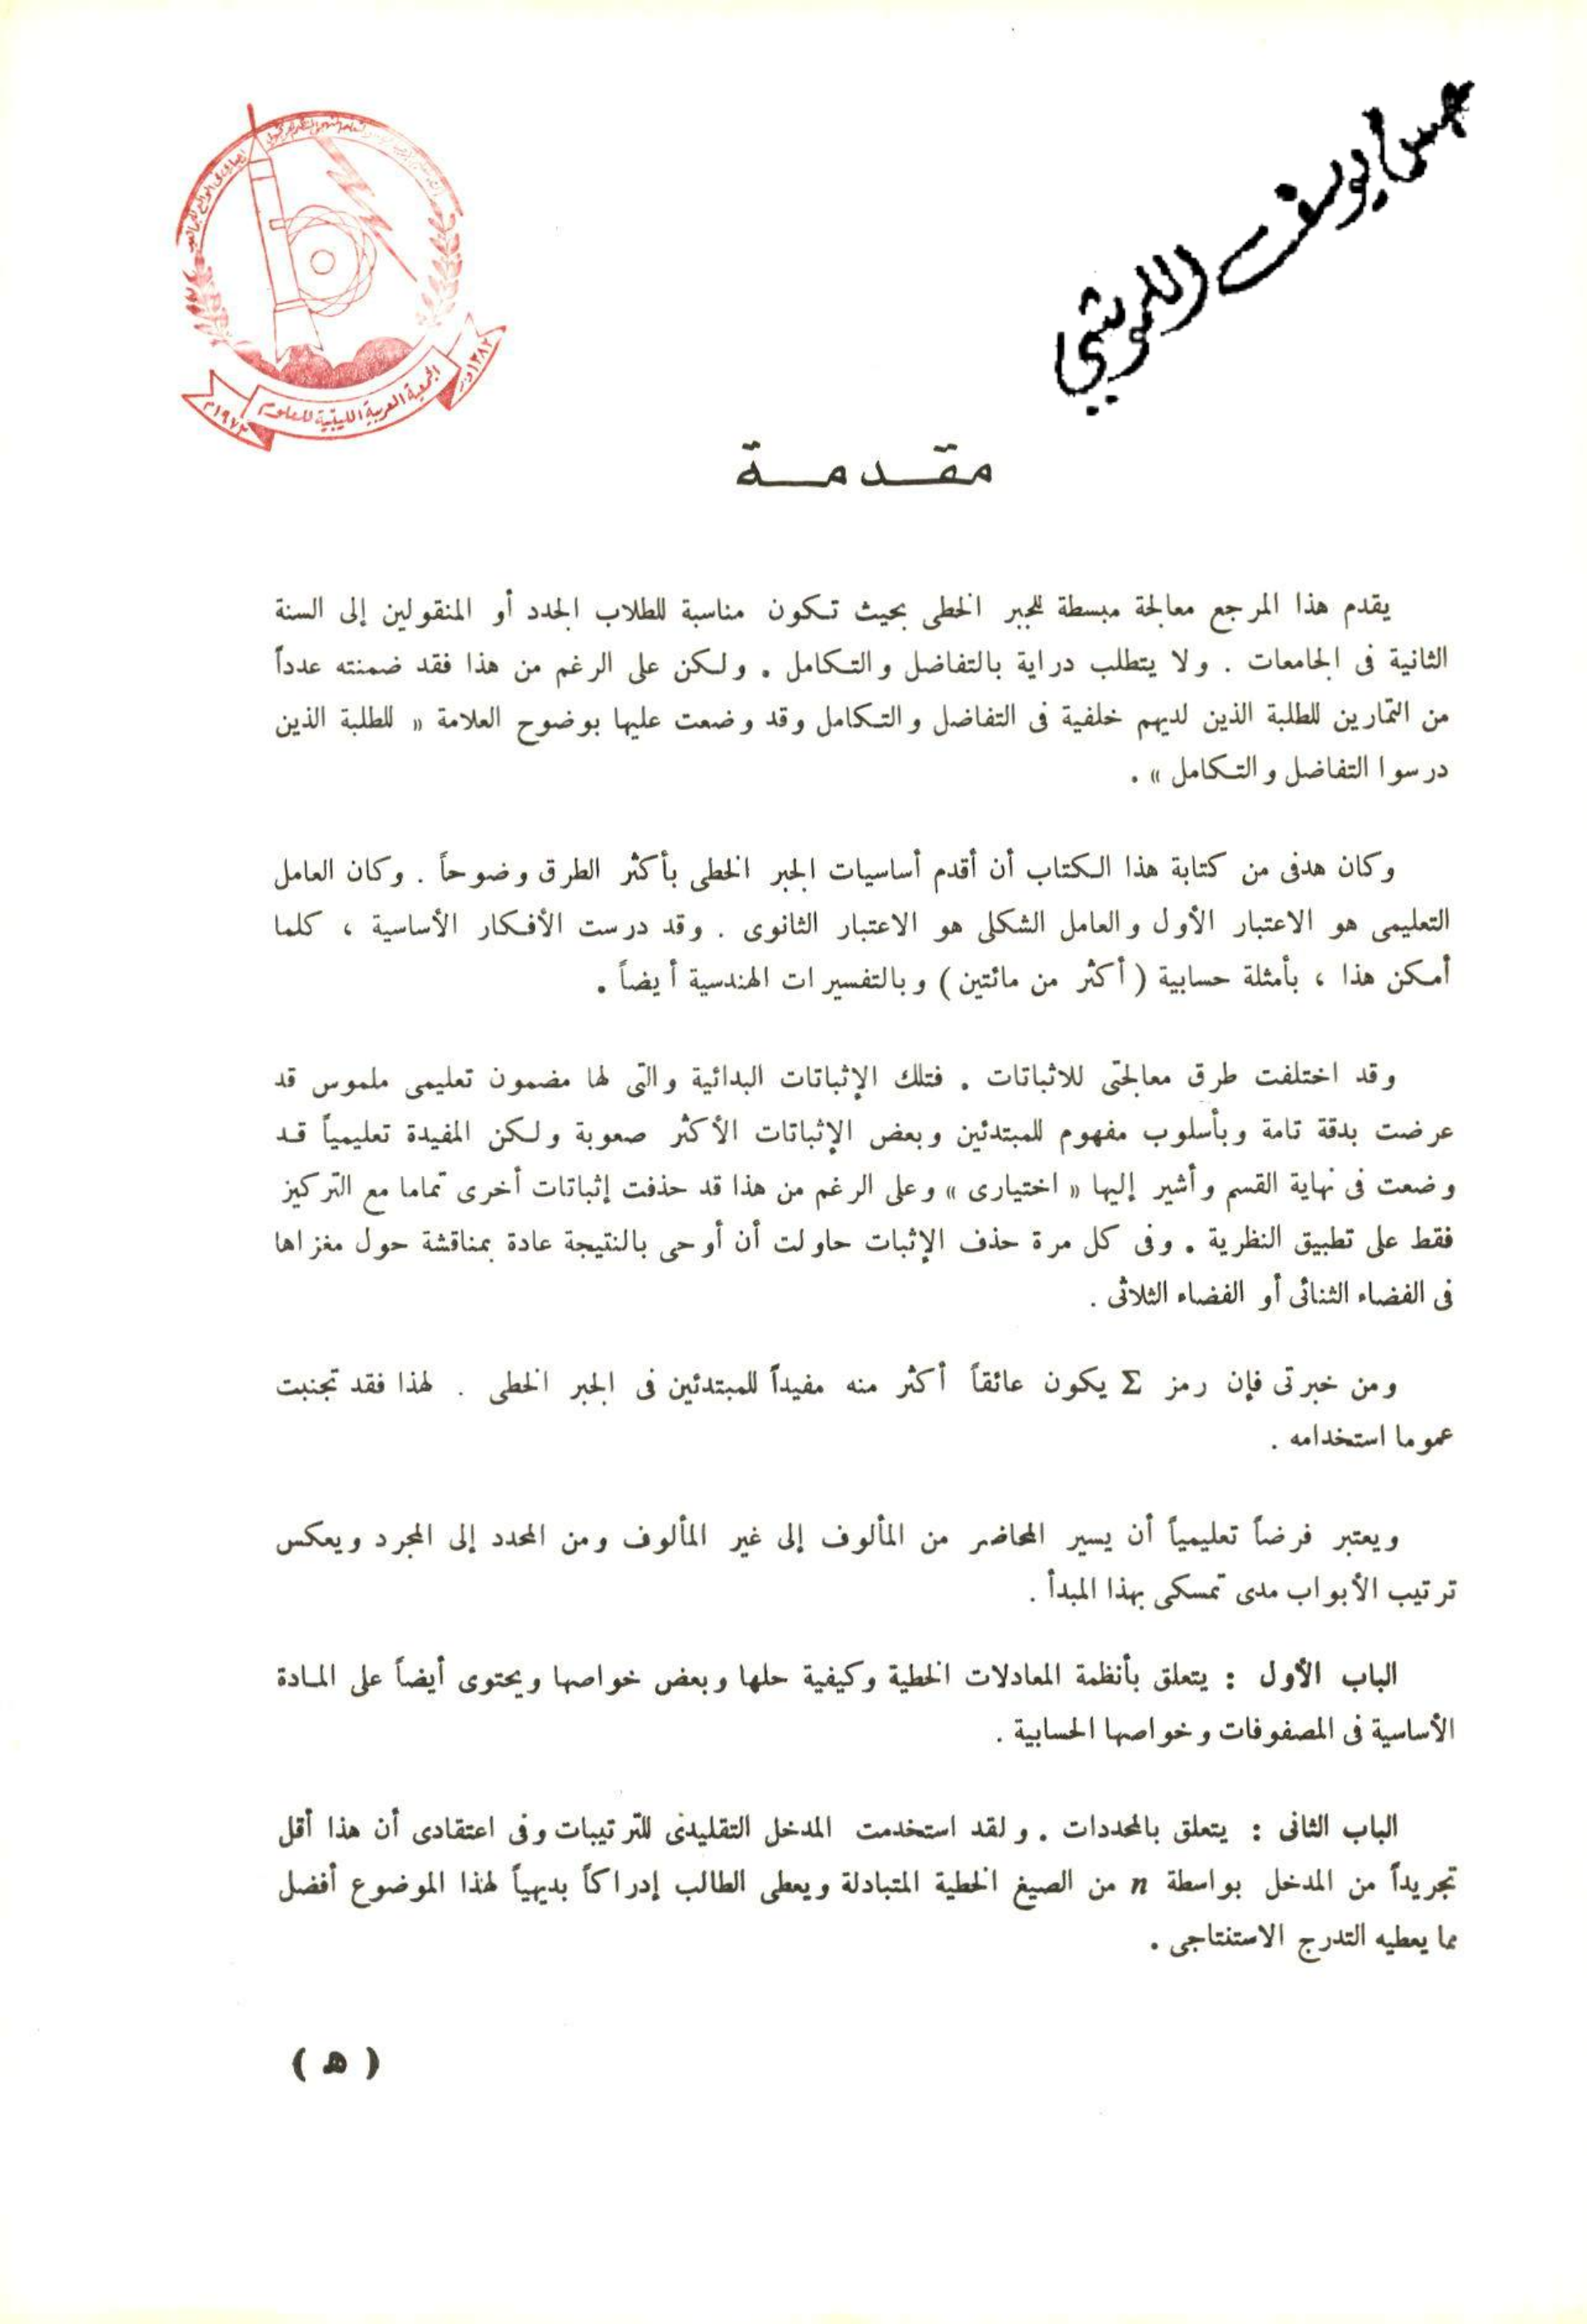 يوسف اللموشي
الجمعية العربية الليبية للعلوم
١٣٨٢ و.ر
١٩٧٣م
مقدمة
يقدم هذا المرجع معالجة مبسطة للجبر الخطى بحيث تكون مناسبة للطلاب الجدد أو المنقولين إلى السنة
الثانية فى الجامعات . ولا يتطلب دراية بالتفاضل والتكامل . ولكن على الرغم من هذا فقد ضمنته عدداً
من التمارين للطلبة الذين لديهم خلفية فى التفاضل والتكامل وقد وضعت عليها بوضوح العلامة « للطلبة الذين
درسوا التفاضل والتكامل » .
وكان هدفى من كتابة هذا الكتاب أن أقدم أساسيات الجبر الخطى بأكثر الطرق وضوحاً . وكان العامل
التعليمى هو الاعتبار الأول والعامل الشكلى هو الاعتبار الثانوى . وقد درست الأفكار الأساسية ، كلما
أمكن هذا ، بأمثلة حسابية ( أكثر من مائتين ) وبالتفسيرات الهندسية أيضاً .
وقد اختلفت طرق معالجتى للاثباتات . فتلك الإثباتات البدائية والتى لها مضمون تعليمى ملموس قد
عرضت بدقة تامة وبأسلوب مفهوم للمبتدئين وبعض الإثباتات الأكثر صعوبة ولكن المفيدة تعليمياً قد
وضعت فى نهاية القسم وأشير إليها « اختيارى » وعلى الرغم من هذا قد حذفت إثباتات أخرى تماما مع التركيز
فقط على تطبيق النظرية . وفى كل مرة حذف الإثبات حاولت أن أوحى بالنتيجة عادة بمناقشة حول مغزاها
فى الفضاء الثنائى أو الفضاء الثلاثى .
ومن خبرتى فإن رمز Σ يكون عائقاً أكثر منه مفيداً للمبتدئين فى الجبر الخطى . لهذا فقد تجنبت
عموما استخدامه .
ويعتبر فرضاً تعليمياً أن يسير المحاضر من المألوف إلى غير المألوف ومن المحدد إلى المجرد ويعكس
ترتيب الأبواب مدى تمسكى بهذا المبدأ .
الباب الأول : يتعلق بأنظمة المعادلات الخطية وكيفية حلها وبعض خواصها ويحتوى أيضاً على المادة
الأساسية فى المصفوفات وخواصها الحسابية .
الباب الثانى : يتعلق بالمحددات . ولقد استخدمت المدخل التقليدى للترتيبات وفى اعتقادى أن هذا أقل
تجريداً من المدخل بواسطة n من الصيغ الخطية المتبادلة ويعطى الطالب إدراكاً بديهياً لهذا الموضوع أفضل
مما يعطيه التدرج الاستنتاجى .
( ه )